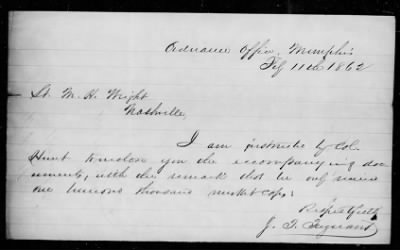 Ordnance Office, Memphis
Feb 11th 1862
Lt. M. H. Wright
Nashville,
I am instructed by Col.
Hunt to return you the accompanying doc-
uments, with the remark that he only received
one hundred thousand musket caps;
Respectfully
J. T.